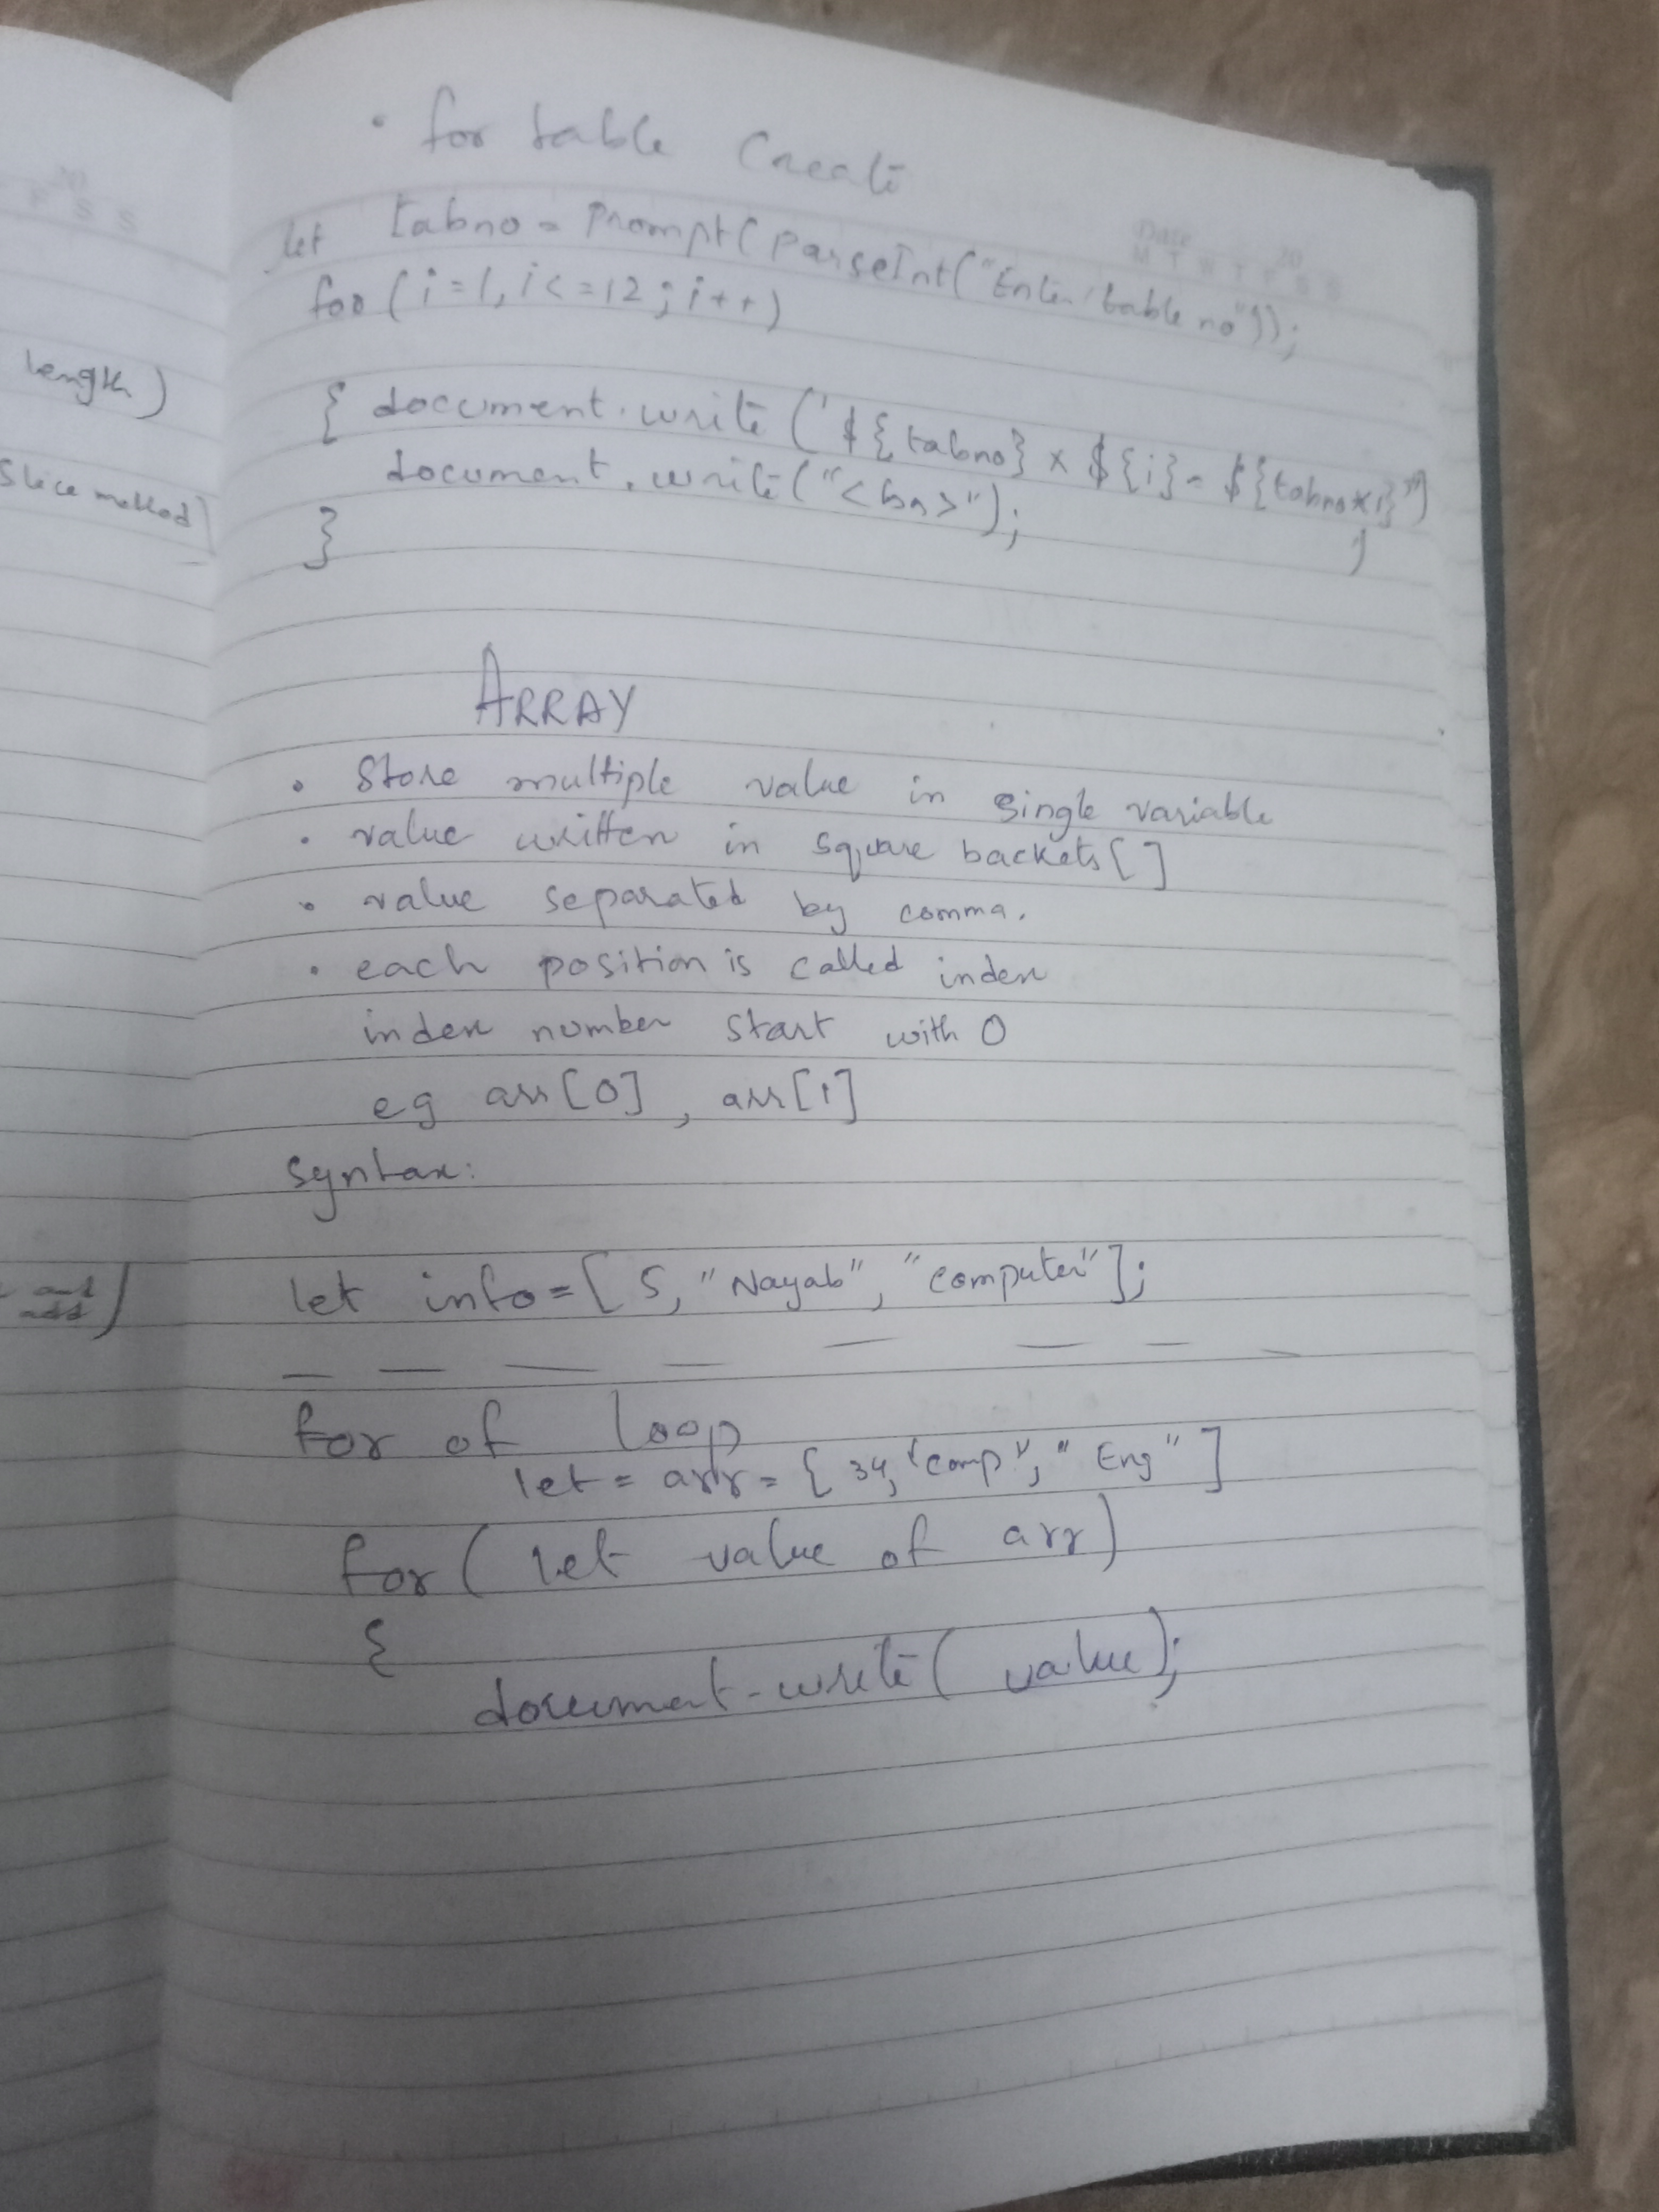 length)
Slice method)
add)
• for table Create
let tabno = Prompt(parseInt("Enter table no"));
for (i=1, i<=12; i++)
{ document.write ('${tabno} x ${i} = ${tabno*i}")
;
document.write("<br>");
}
ARRAY
• Store multiple value in single variable
• value written in square backets []
• value separated by comma.
• each position is called index
index number start with 0
eg arr[0], arr[1]
Syntax:
let info = [ 5, "Nayab", "Computer"];
for of loop
let = arr = [ 34, "comp", " Eng" ]
for ( let value of arr)
{
document.write( value);